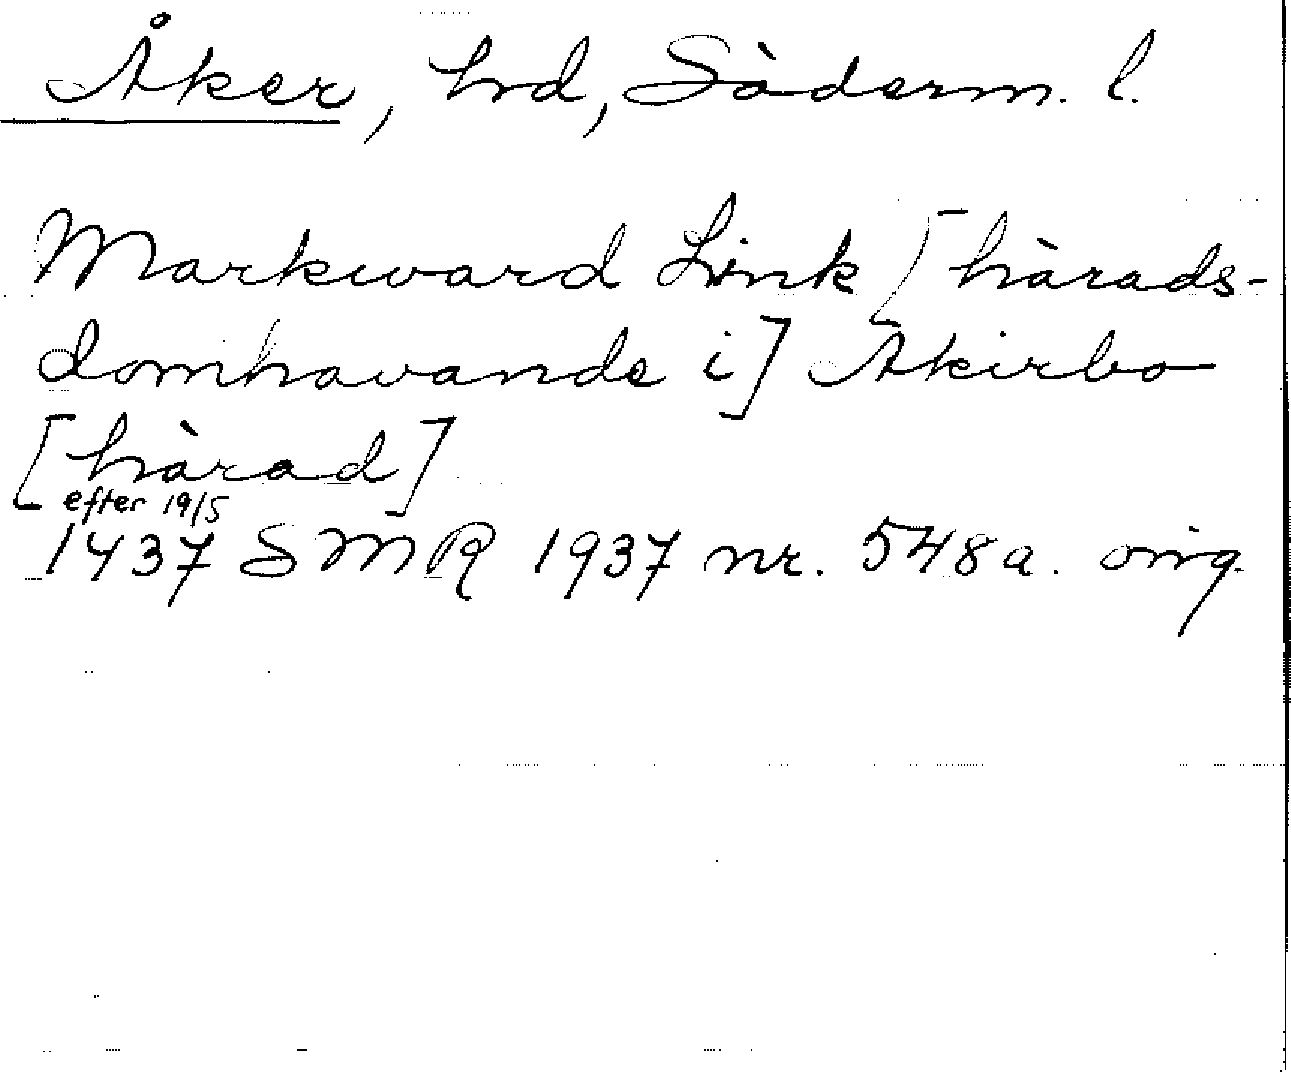 Åker, hd, Söderm. l.
Markward Link [härads-
domhavande i] Akirbo
[härad]
efter 19/5
1437 SMR 1937 nr. 548a. orig.